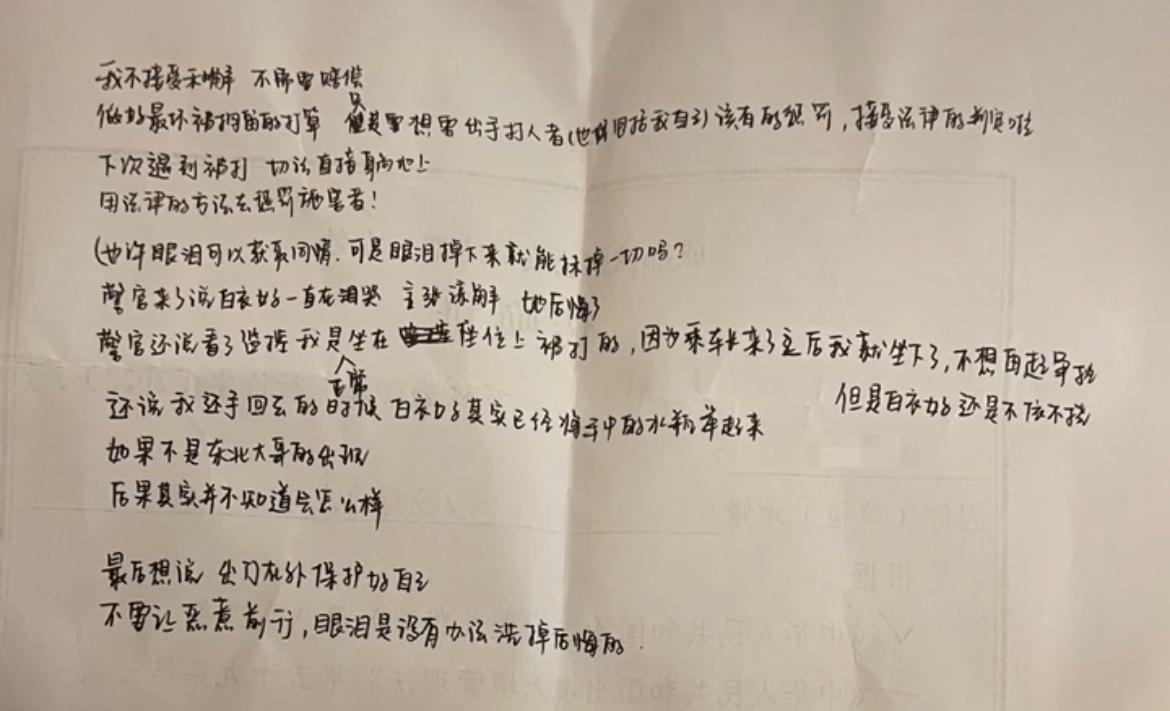 我不接受和解 不需要赔偿
做好最坏被拘留的打算 只是想要给予打人者(也许包括我自己)该有的惩罚，接受法律的判定
下次遇到被打 切记直接躺地上
用法律的方法去惩罚施害者！
(也许眼泪可以获取同情.可是眼泪掉下来就能抹掉一切吗？
警官来了说白衣女一直在泪哭 主张谅解 她后悔了
警官还说看了监控 我是正常坐在座位上被打的，因为乘车长来了之后我就坐下了，不想再起争执
但是白衣女还是不依不挠
还说我还手回去的时候 白衣女其实已经将手中的水瓶举起来
如果不是东北大哥的出现
后果其实并不知道会怎么样
最后想说 出门在外保护好自己
不要让恶意前行，眼泪是没有办法洗掉后悔的.